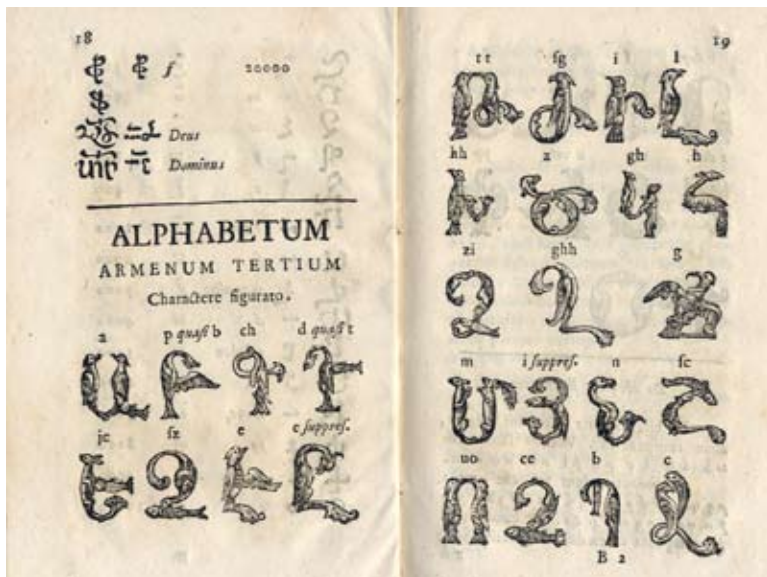 18
ֆ ֆ f 20000
ֆ
Deus
Dominus
ALPHABETUM
ARMENUM TERTIUM
Charactere figurato.
a p quaſi b ch d quaſi t
Ա Բ Գ Դ
je ſz e e ſuppreſ.
Ե Զ Է Ը
19
tt ſg i l
Թ Ժ Ի Լ
hh z gh h
Խ Ծ Կ Հ
zi ghh g
Ձ Ղ Ճ
m i ſuppreſ. n ſc
Մ Յ Ն Շ
uo ce b c
Ո Չ Պ Ջ
B 2